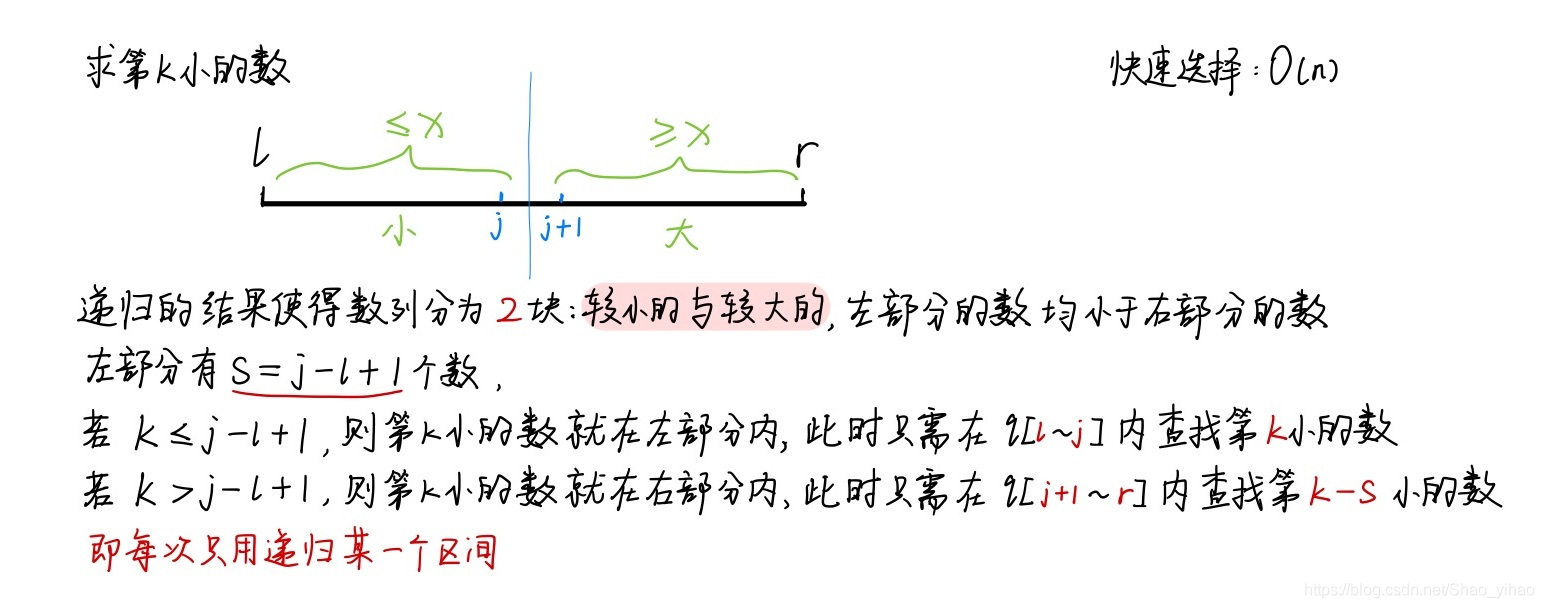 求第k小的数
快速选择:O(n)
≤x
≥x
l
r
小
j
j+1
大
递归的结果使得数列分为2块:较小的与较大的,左部分的数均小于右部分的数
左部分有S=j-l+1个数,
若 k≤j-l+1,则第k小的数就在左部分内,此时只需在 q[l~j]内查找第k小的数
若 k>j-l+1,则第k小的数就在右部分内,此时只需在 q[j+1~r]内查找第k-S小的数
即每次只用递归某一个区间
https://blog.csdn.net/Shao_yihao